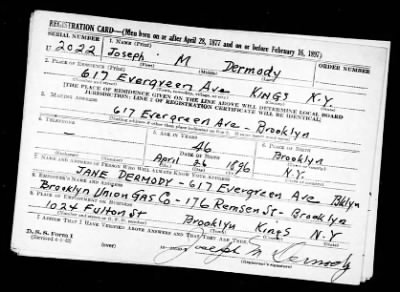 REGISTRATION CARD—(Men born on or after April 28, 1877 and on or before February 16, 1897)
SERIAL NUMBER 1. NAME (Print) ORDER NUMBER
U 2022 Joseph M Dermody
(First) (Middle) (Last)
2. PLACE OF RESIDENCE (Print)
617 Evergreen Ave KINGS N.Y.
[THE PLACE OF RESIDENCE GIVEN ON THE LINE ABOVE WILL DETERMINE LOCAL BOARD
JURISDICTION; LINE 2 OF REGISTRATION CERTIFICATE WILL BE IDENTICAL]
3. MAILING ADDRESS
617 Evergreen Ave - Brooklyn
4. TELEPHONE 5. AGE IN YEARS 6. PLACE OF BIRTH
46 Brooklyn
DATE OF BIRTH
April 26 1896 N.Y.
7. NAME AND ADDRESS OF PERSON WHO WILL ALWAYS KNOW YOUR ADDRESS
JANE DERMODY - 617 Evergreen Ave Bklyn
8. EMPLOYER'S NAME AND ADDRESS
Brooklyn Union Gas Co - 176 Remsen St - Brooklyn
9. PLACE OF EMPLOYMENT OR BUSINESS
1024 Fulton St Brooklyn Kings N.Y
I AFFIRM THAT I HAVE VERIFIED ABOVE ANSWERS AND THAT THEY ARE TRUE.
D. S. S. Form 1
(Revised 4-1-42) (over) Joseph M Dermody
(Registrant's signature)